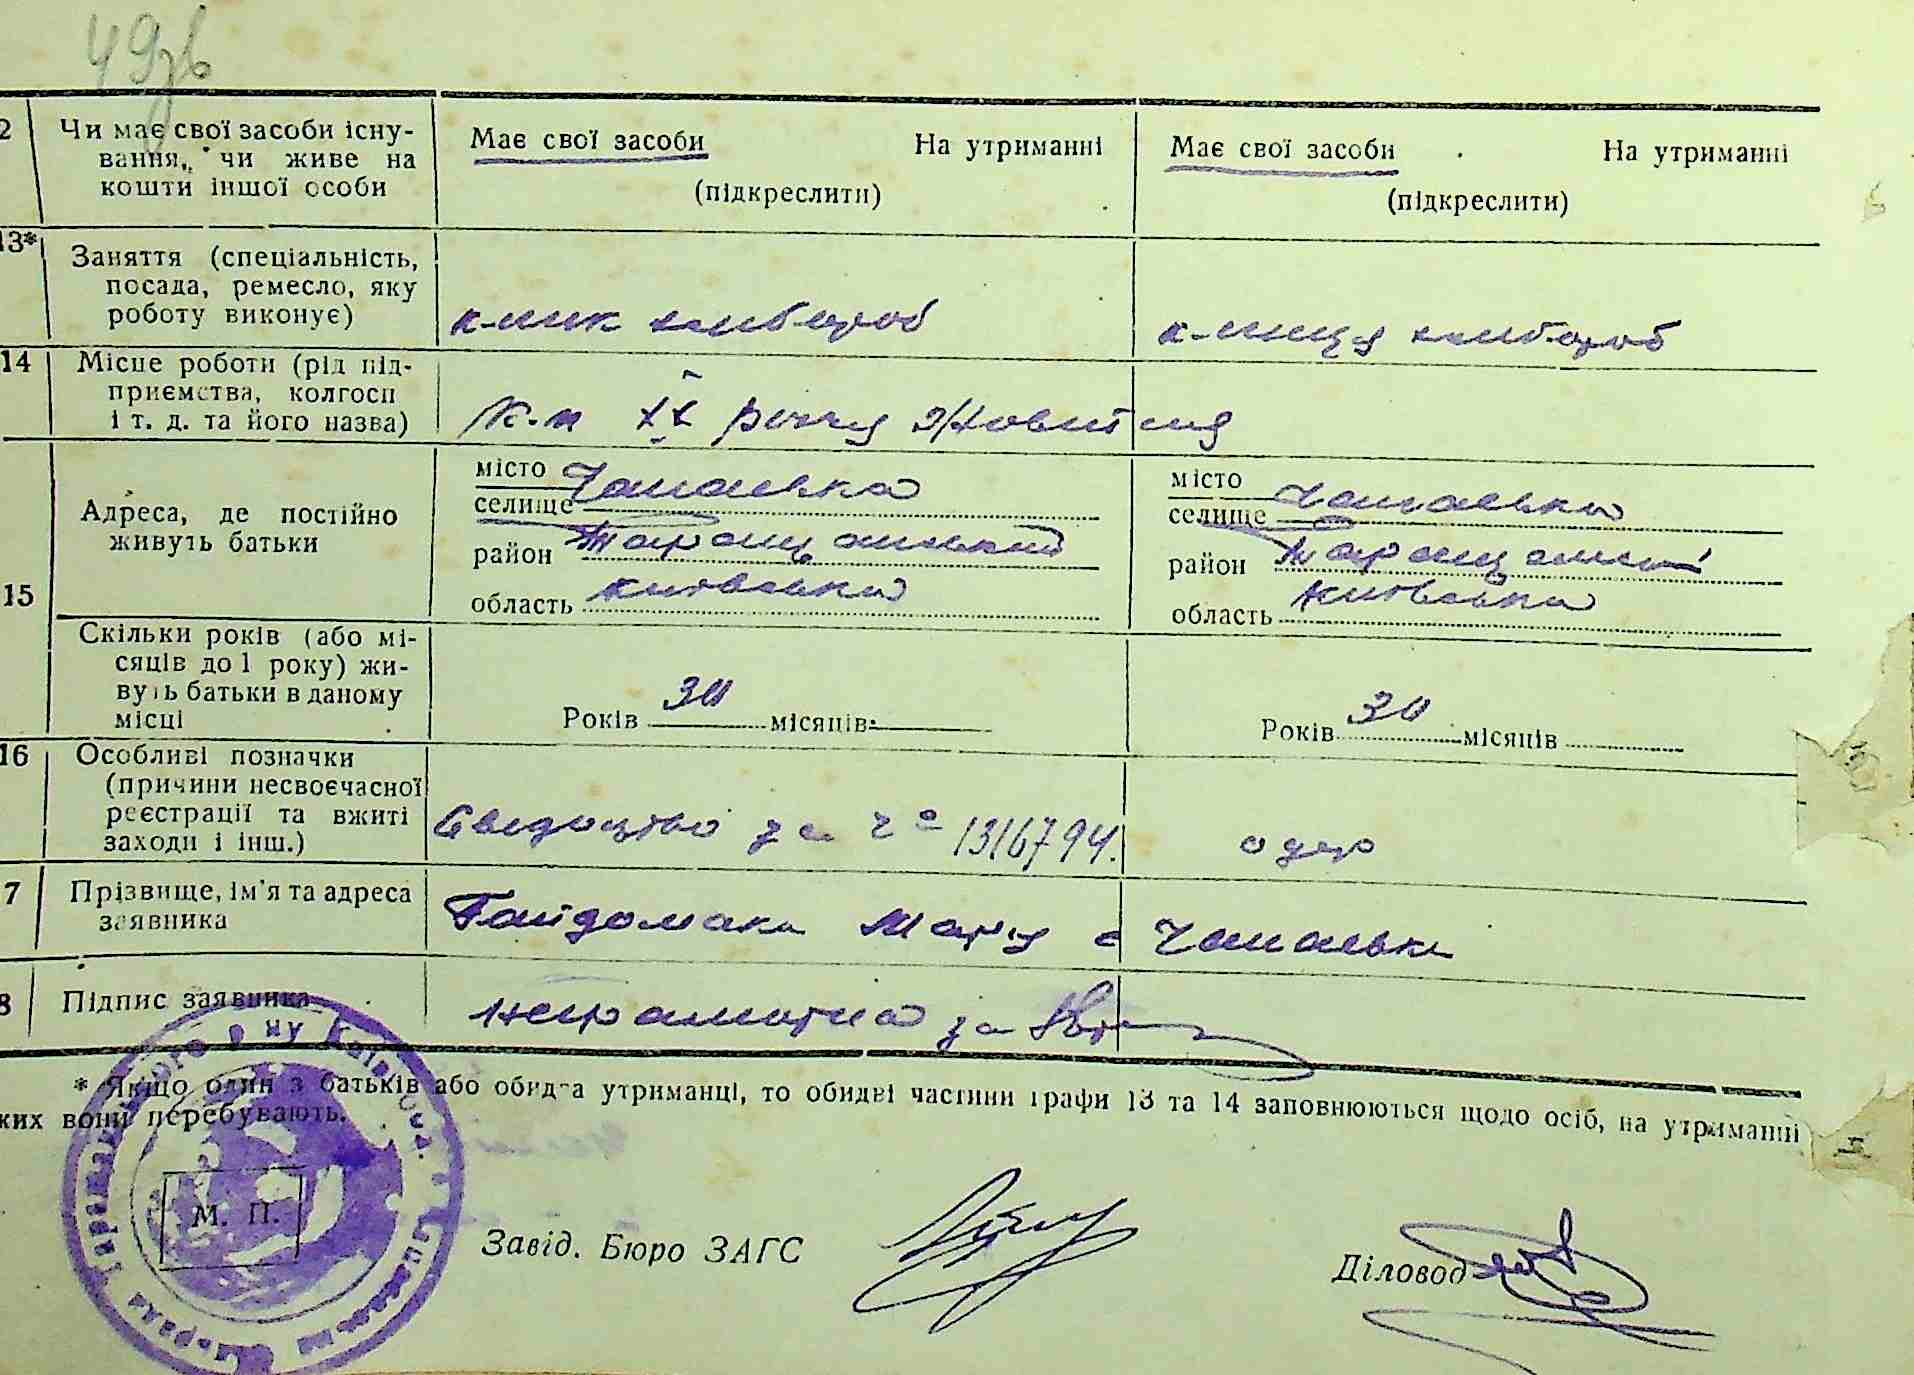 49зв
2 Чи має свої засоби існу-
вання, чи живе на
кошти іншої особи
Має свої засоби На утриманні
(підкреслити)
Має свої засоби На утриманні
(підкреслити)
13* Заняття (спеціальність,
посада, ремесло, яку
роботу виконує)
к-ник хлібороб
к-ниця хлібороб
14 Місце роботи (рід під-
приємства, колгосп
і т. д. та його назва)
к-п ХХ років Жовтня
15
Адреса, де постійно
живуть батьки
місто
селище Чапаєвка
район Таращанський
область Київська
місто
селище Чапаєвка
район Таращанський
область Київська
Скільки років (або мі-
сяців до 1 року) жи-
вуть батьки в даному
місці
Років 30 місяців
Років 30 місяців
16 Особливі позначки
(причини несвоєчасної
реєстрації та вжиті
заходи і інш.)
Свидоцтво за № 1316794.
7 Прізвище, ім'я та адреса
заявника
Гайдомака с Чапаєвка
8 Підпис заявника
неграмотна за
* Якщо один з батьків або обидва утриманці, то обидві частини графи 13 та 14 заповнюються щодо осіб, на утриманні
яких вони перебувають.
М. П.
Завід. Бюро ЗАГС
Діловод